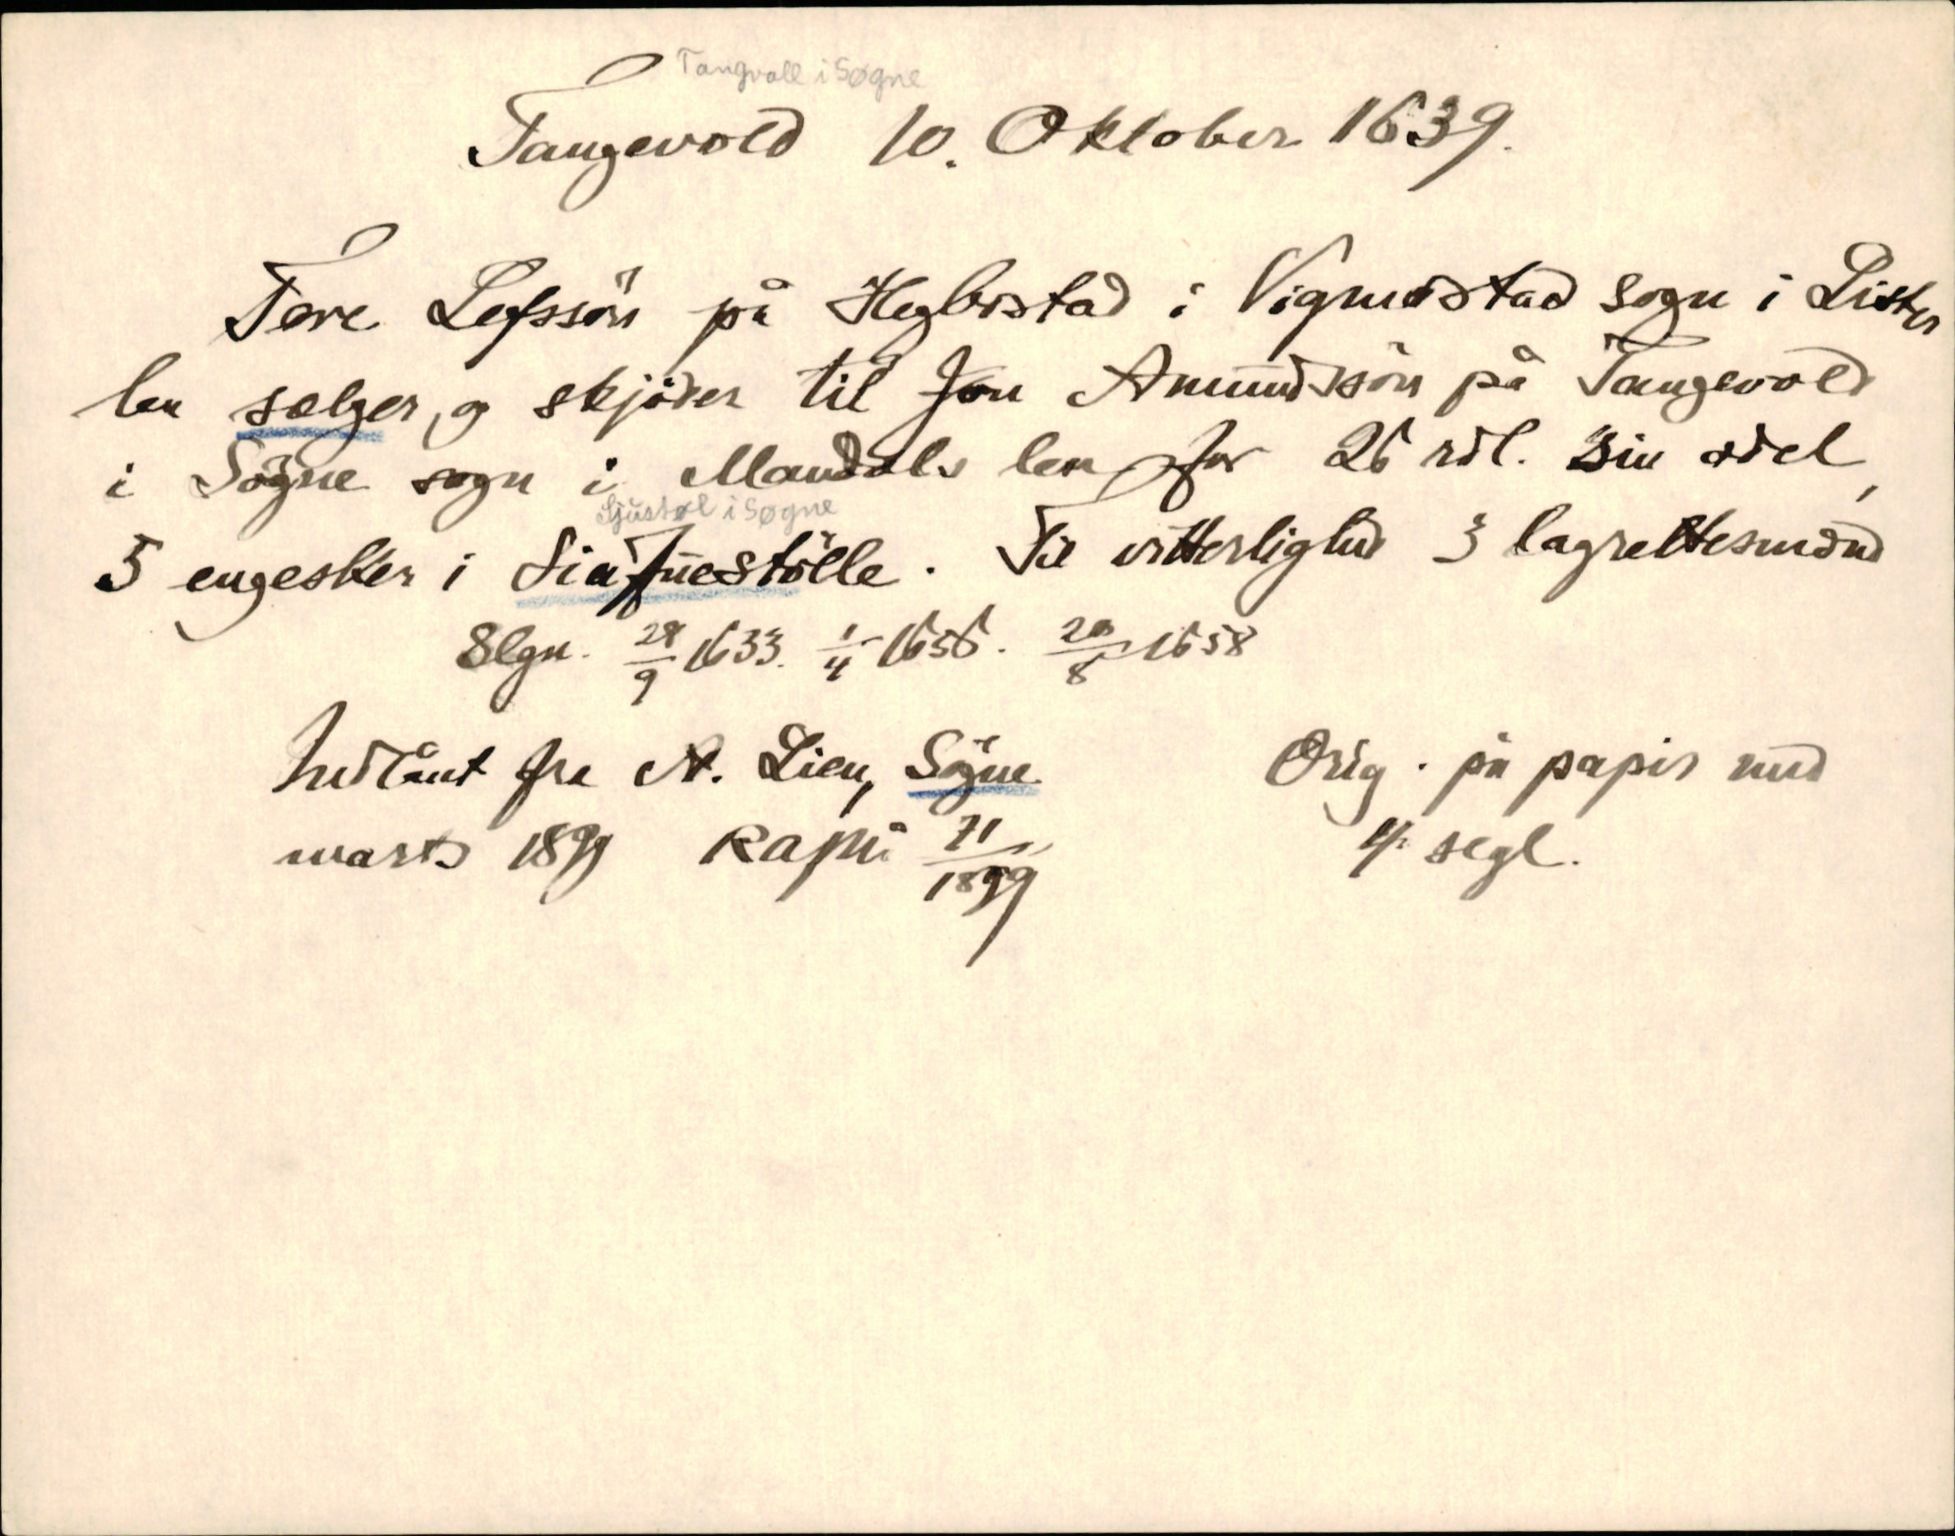 Tangvall i Søgne
Tangevold 10. Oktober 1639.
Tore Lefssön på Heglestad i Vigmostad sogn i Lister
len sælger og skjöder til Jon Amundssön på Tangevold
i Sögne sogn i Mandals len for 26 rdl. sin odel,
Sjustøl i Søgne
5 engesker i Siafuestölle. Til vitterlighed 3 lagrettesmænd
Slgn. 28/9 1633. 1/4 1656. 20/8 1658
Indlånt fra N. Lien, Sögne
marts 1899 Kapsi 21/1899
Orig. på papir med
4 segl.